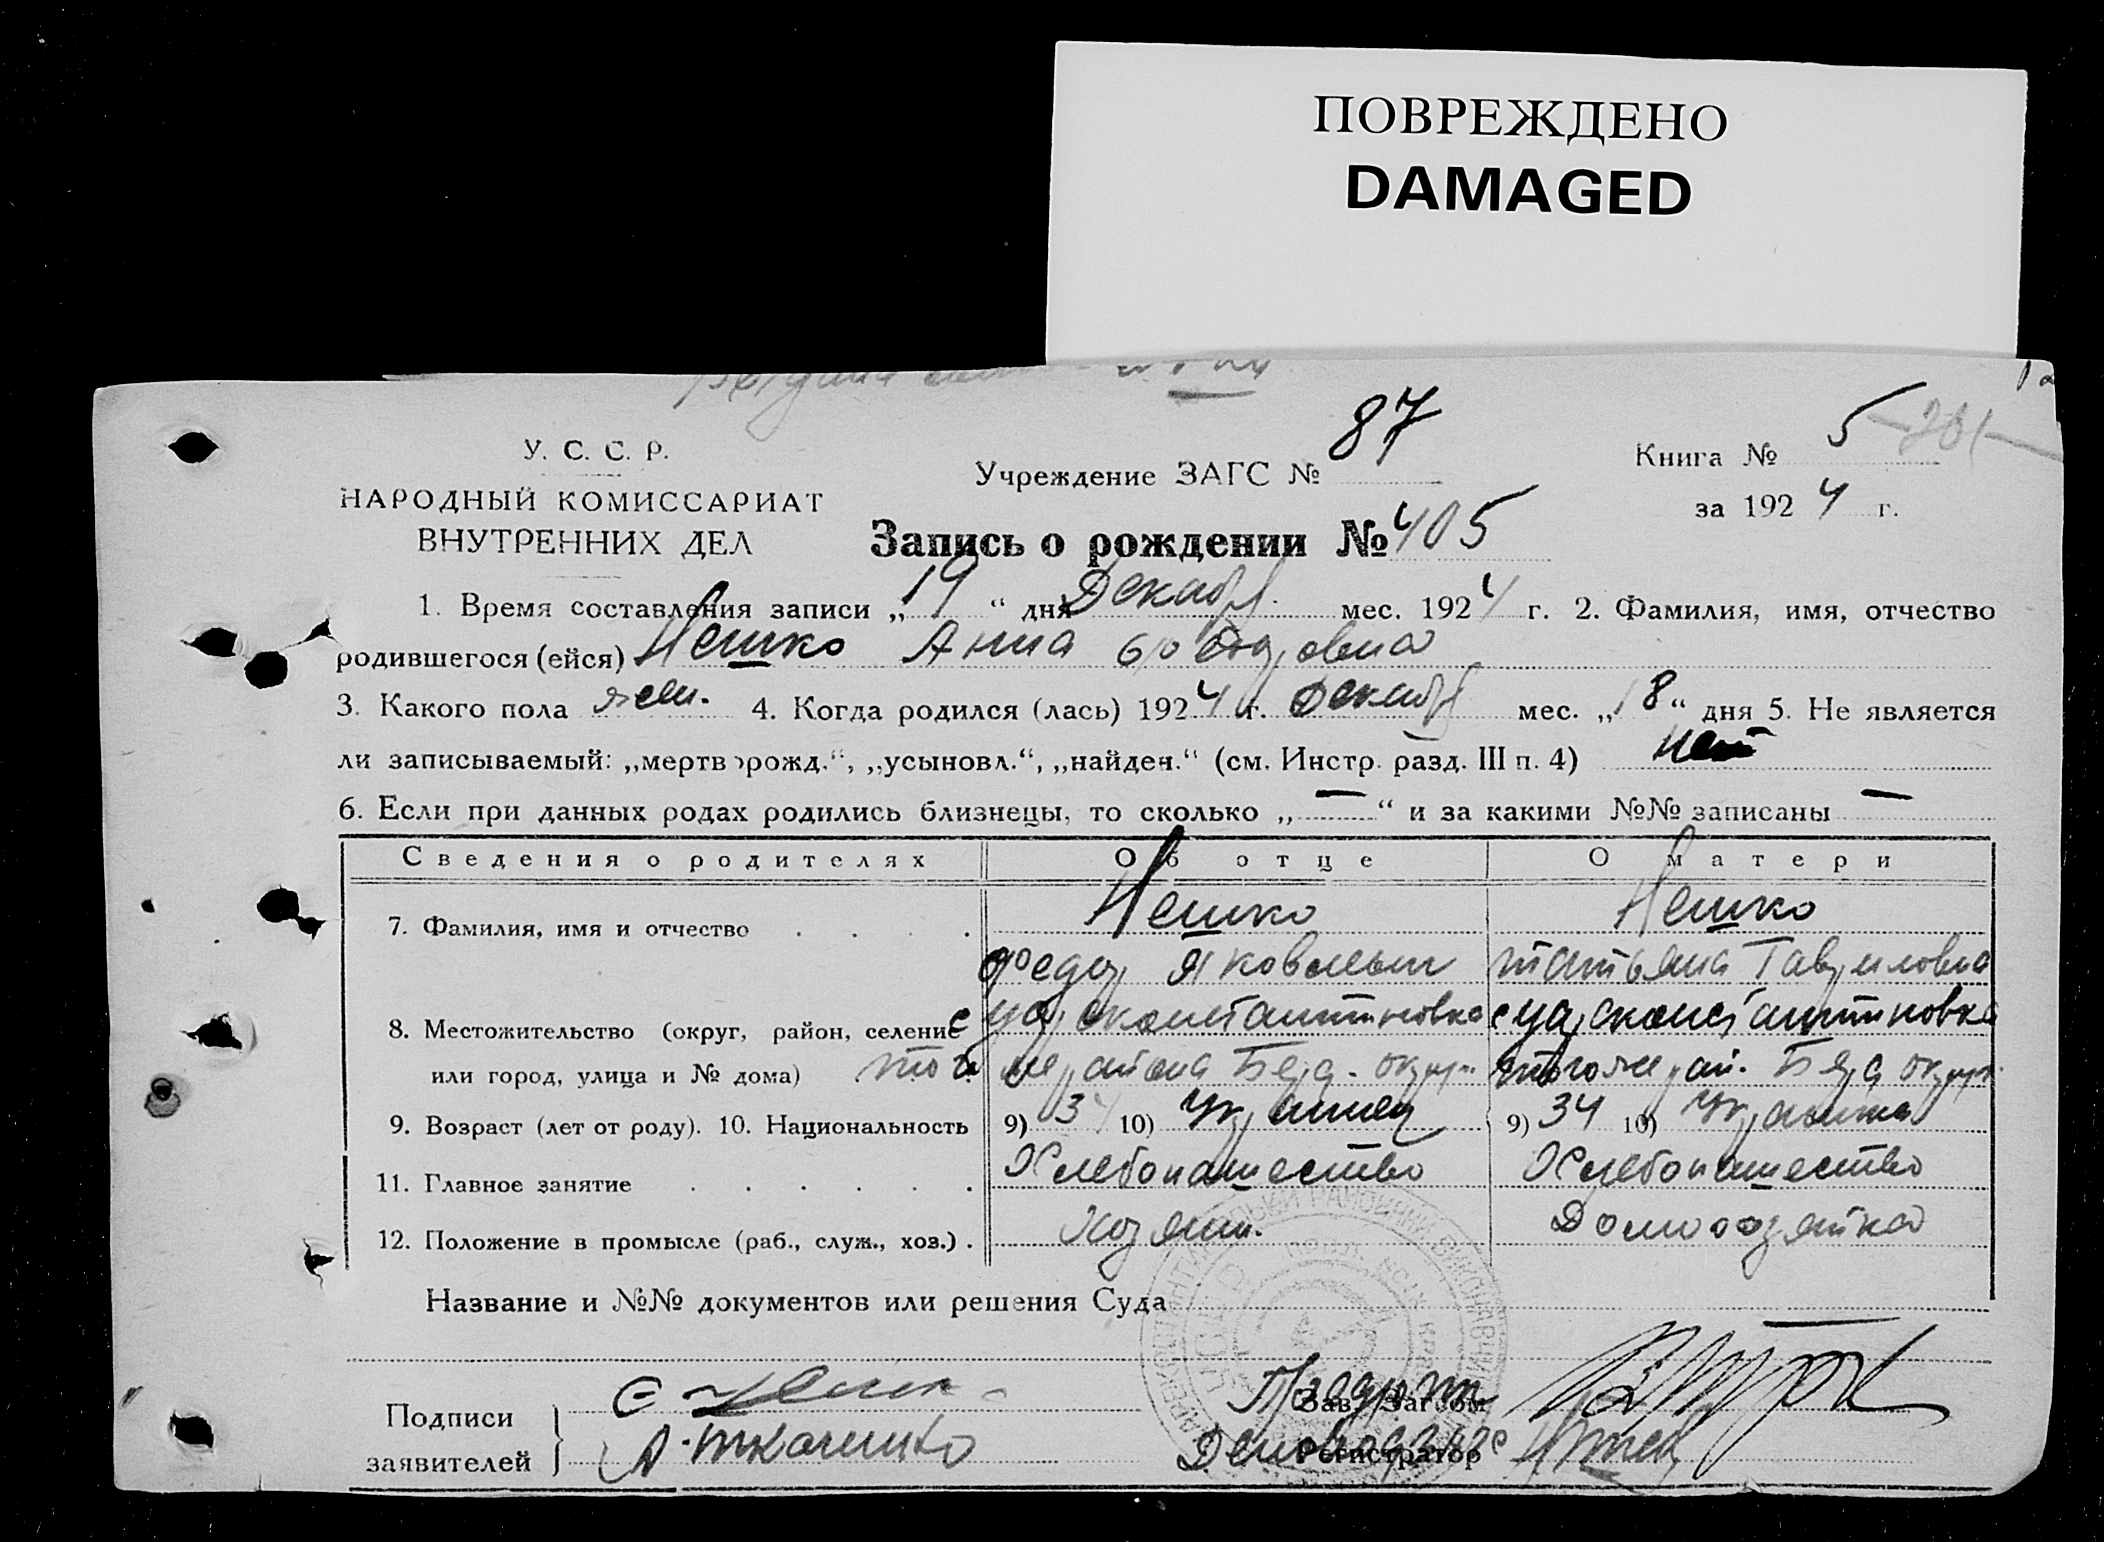 ПОВРЕЖДЕНО
DAMAGED
У. С. С. Р.
НАРОДНЫЙ КОМИССАРИАТ
ВНУТРЕННИХ ДЕЛ
Учреждение ЗАГС № 87
Книга № 5
за 1924 г.
Запись о рождении № 405
1. Время составления записи „19“ дня Декабр. мес. 1924 г. 2. Фамилия, имя, отчество
родившегося (ейся) Нешко Анна Федоровна
3. Какого пола жен. 4. Когда родился (лась) 1924 г. Декабр мес. „18“ дня 5. Не является
ли записываемый: „мертворожд.“, „усыновл.“, „найден.“ (см. Инстр. разд. III п. 4) нет
6. Если при данных родах родились близнецы, то сколько „—“ и за какими №№ записаны —
Сведения о родителях Об отце О матери
7. Фамилия, имя и отчество Нешко Нешко
Яковлевич Татьяна Гавриловна
8. Местожительство (округ, район, селение
или город, улица и № дома) того же района Бер. округ
9. Возраст (лет от роду). 10. Национальность 9) 34 10) Украинец 9) 34 10) Украинка
11. Главное занятие Хлебопашество Хлебопашество
12. Положение в промысле (раб., служ., хоз.) Хозяин. Домохозяйка
Название и №№ документов или решения Суда —
Подписи
заявителей
Зав. Загсом
Регистратор